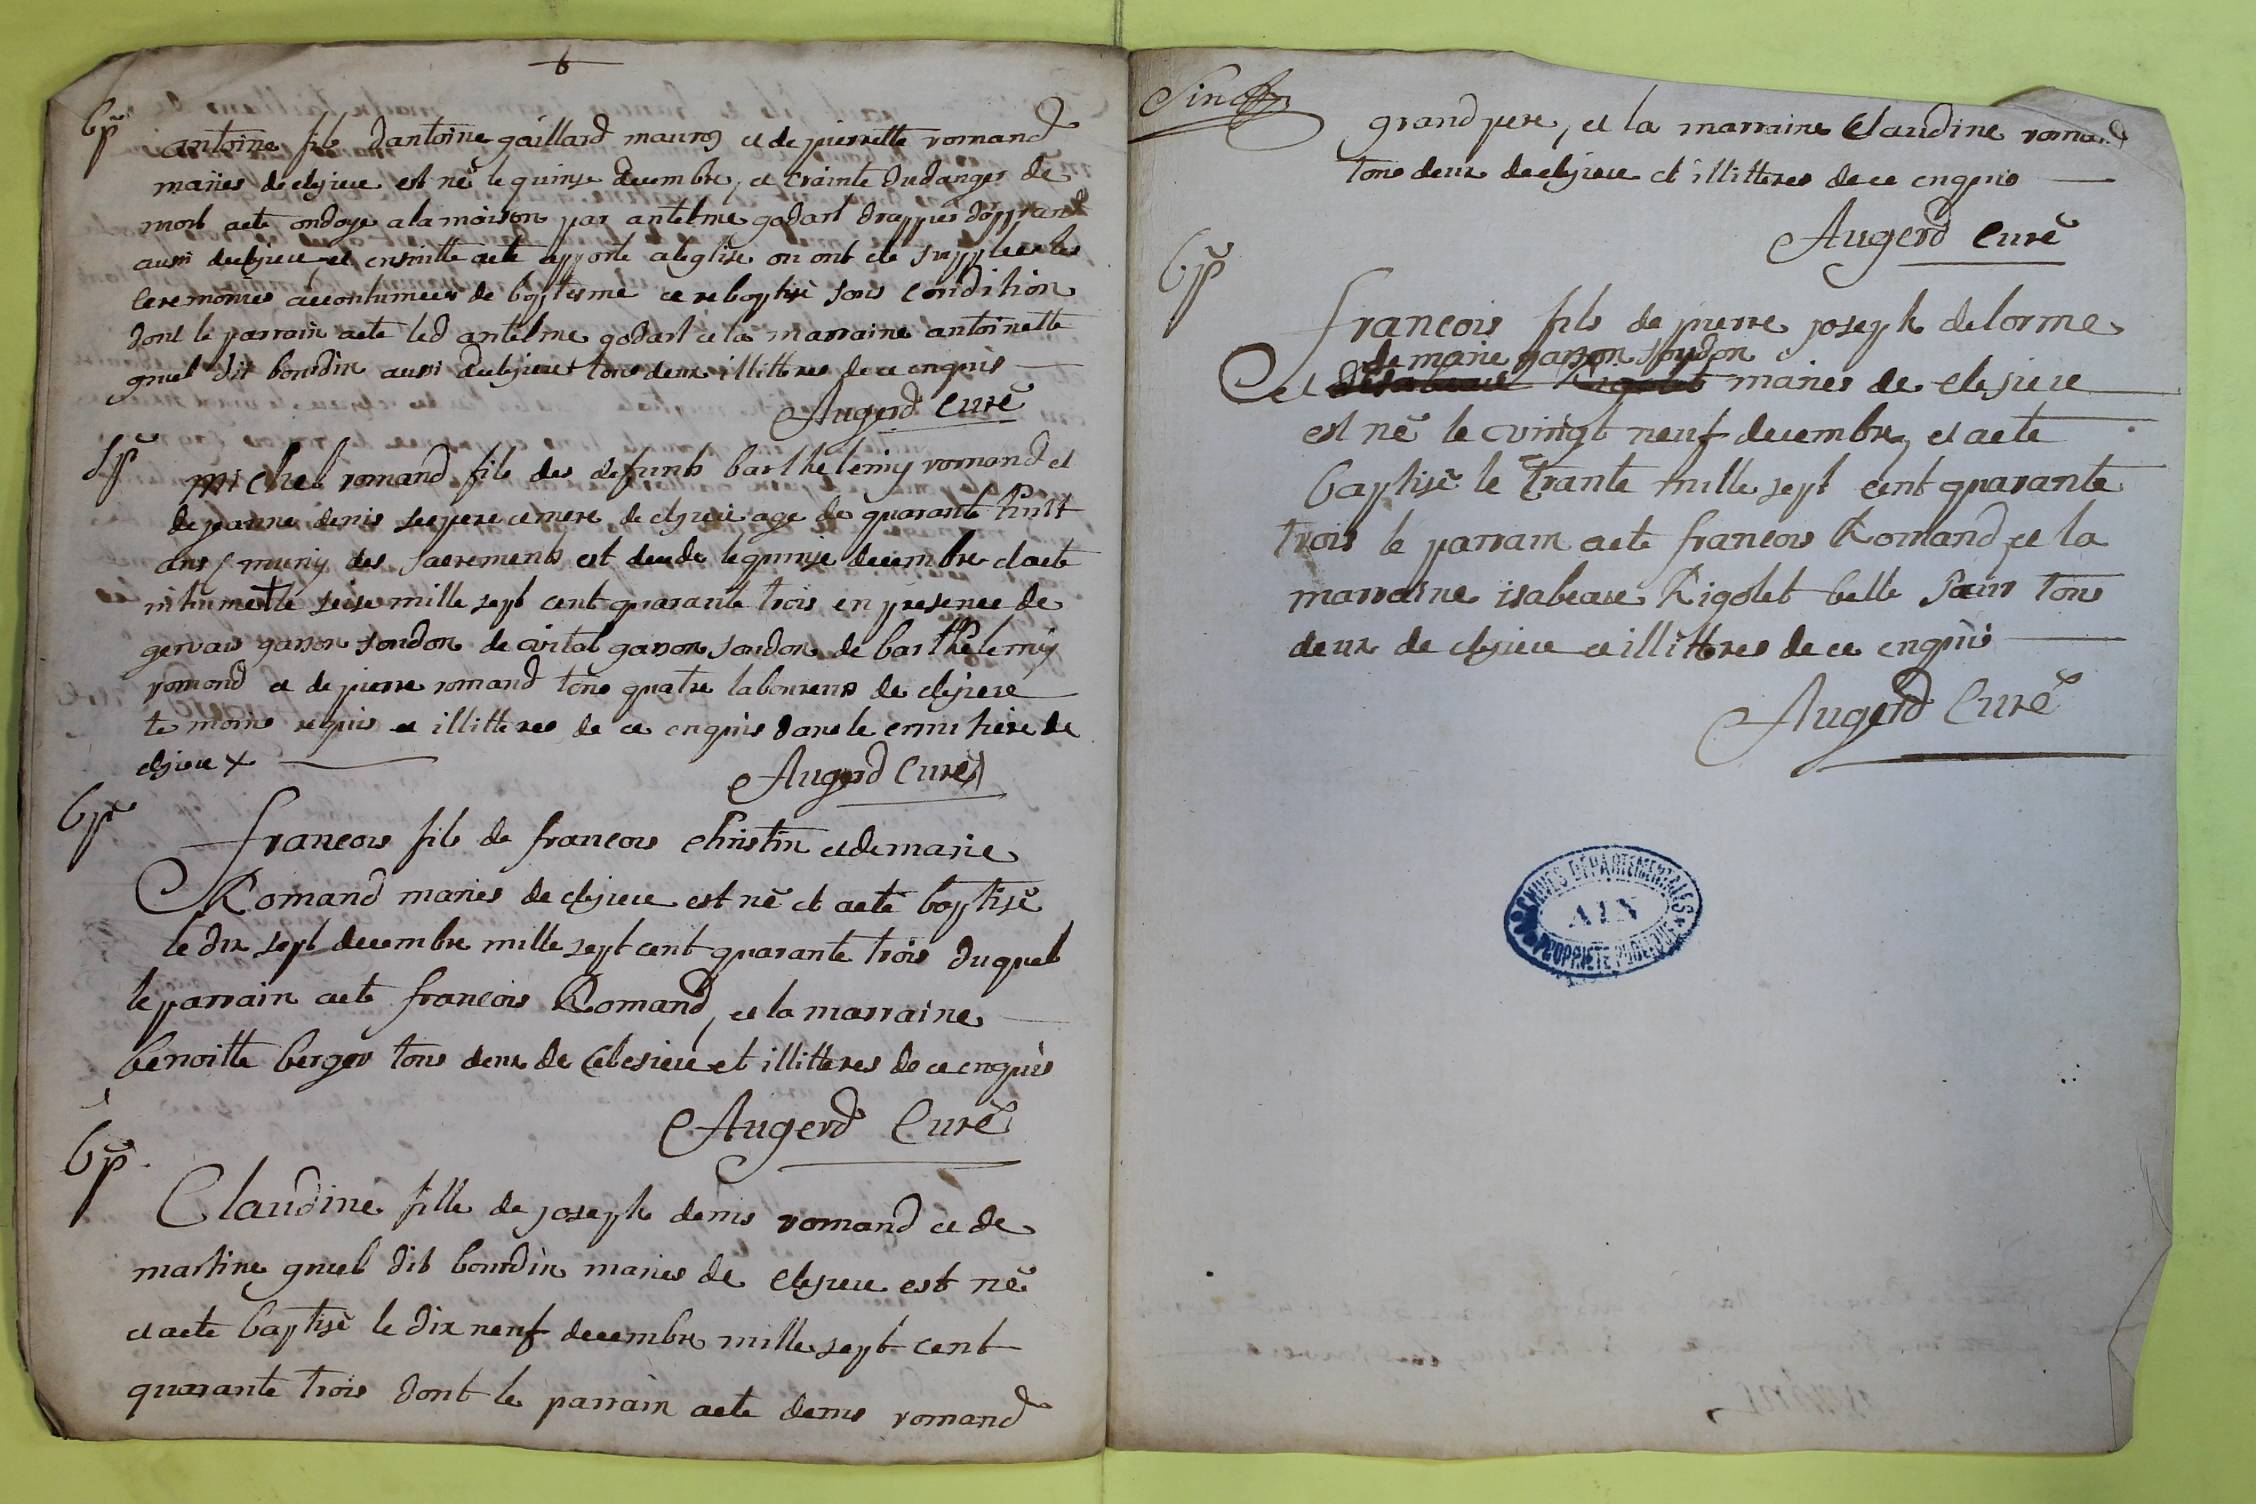 6
bp̃
antoine fils d'antoine gaillard mauris et de pierrette romand
mariés de clejieu est né le quinze decembre, et crainte du danger de
mort a eté ondoyé a la maison par antelme godart
aussi de clejieu et ensuitte a eté apporte a leglise ou ont ete supplées les
ceremonies accoutumées de baptesme et rebaptisé sous condition
dont le parrain a eté led antelme godart et la marraine antoinette
gruel dit bourdin aussi de clejieu tous deux illitteres de ce enquis
Augerd Curé
Sp̃
michel romand fils des defunts barthelemy romand et
de jeanne denis ses pere et mere de clejieu age de quarante huit
ans muny des sacrements est decedé le quinze decembre et a eté
inhumé le seise mille sept cent quarante trois en presence de
gervais garson soudon de vital garson soudon de barthelemy
romand et de pierre romand tous quatre laboureurs de clejieu
temoins requis et illitteres de ce enquis dans le cimitiere de
clejieu x
Augerd Curé
bp̃
francois fils de francois Christin et de marie
Romand mariés de clejieu est né et a eté baptisé
le dix sept decembre mille sept cent quarante trois duquel
le parrain a eté francois Romand, et la marraine
benoitte berger tous deux de Clesieu et illitteres de ce enquis
Augerd Curé
bp̃
Claudine fille de joseph denis romand et de
martine gruel dit bourdin mariés de clejieu est né
et a eté baptisé le dix neuf decembre mille sept cent
quarante trois dont le parrain a eté denis romand
grand pere, et la marraine Claudine romand
tous deux de clejieu et illitteres de ce enquis
Augerd Curé
bp̃
francois fils de pierre joseph delorme
de marie garson soudon
et Rigolet mariés de clejieu
est né le vingt neuf decembre, et a eté
baptisé le trante mille sept cent quarante
trois le parrain a eté francois Romand, et la
marraine isabeau Rigolet belle soeur tous
deux de clejieu et illittres de ce enquis
Augerd Curé
ARCHIVES DÉPARTEMENTALES
AIN
PROPRIÉTÉ PUBLIQUE